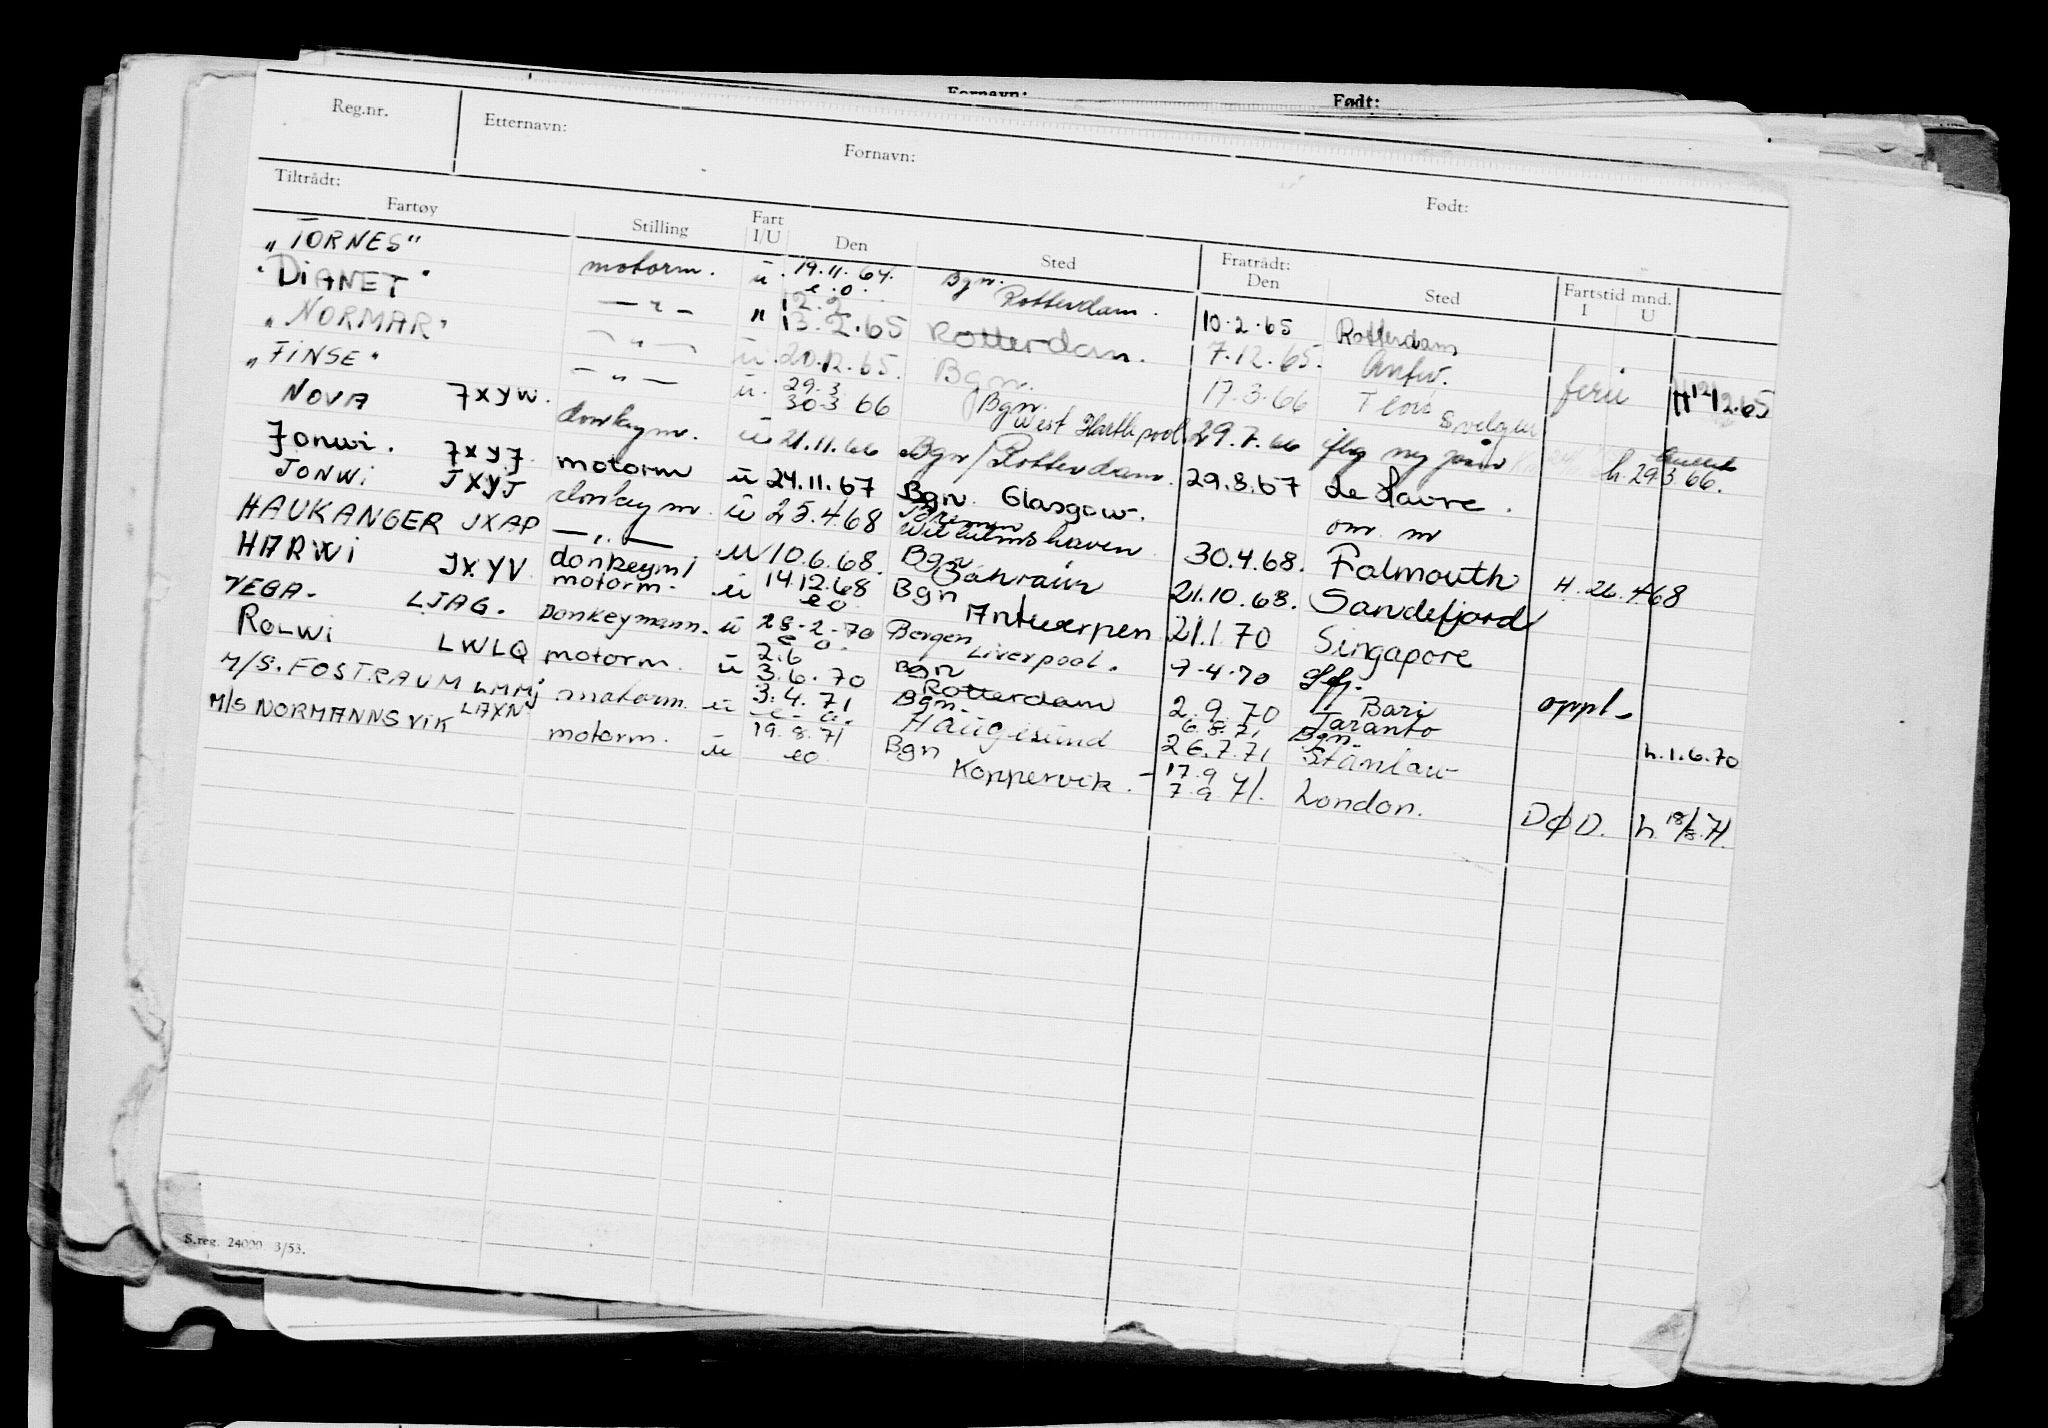 Fornavn: Født:
Reg.nr. Etternavn: Fornavn: Født:
Tiltrådt: Fratrådt:
Fartøy Stilling Fart I/U Den Sted Den Sted Fartstid mnd. I U
"TORNES" motorm. u 19.11.64. e.o. Bgn. Rotterdam. 10.2.65 Rotterdam
"DiANET" — " — " 12.2 13.2.65 Rotterdam. 7.12.65. Antw. ferie H 12/12.65
"NORMAR" — " — u. 20.12.65. Bgn. 17.3.66
"FiNSE" — " — u. 29.3 30.3 66 Bgn. West Hartlepool 29.7.66
NOVA JXYW. donkeym. u 21.11.66 Bgn/Rotterdam. 29.8.67 Le Havre. h. 29.3.66.
Jonwi. JXYJ. motorm u 24.11.67 Bgn. Glasgow. om. m
JONWi JXYJ donkeym. u 25.4.68 Wilhelmshaven 30.4.68. Falmouth H. 26.4.68
HAUKANGER JXAP — " — u 10.6.68. Bgn Bahrain 21.10.68. Sandefjord
HARWi JXYV donkeym/ motorm. u 14.12.68 e o Bgn Antwerpen 21.1.70 Singapore
VEGA. LJAG. Donkeymann. u 28.2.70 e o. Bergen Liverpool. 7.4.70 oppl.
ROLWi LWLQ motorm. u 2.6 3.6.70 Bgn Rotterdam 2.9.70 Bari Taranto h. 1.6.70
M/S. FOSTRAUM LMMJ motorm. u 3.4.71 e.o. Bgn. Haugesund 6.8.71 26.7.71 Bgn. Stanlaw
M/S NORMANNSVIK LAXN motorm. u 19.8.71 eo Bgn Koppervik. 17.9 7.9.71. London. DØD. h. 18/8.71.
S.reg. 24000 3/53.